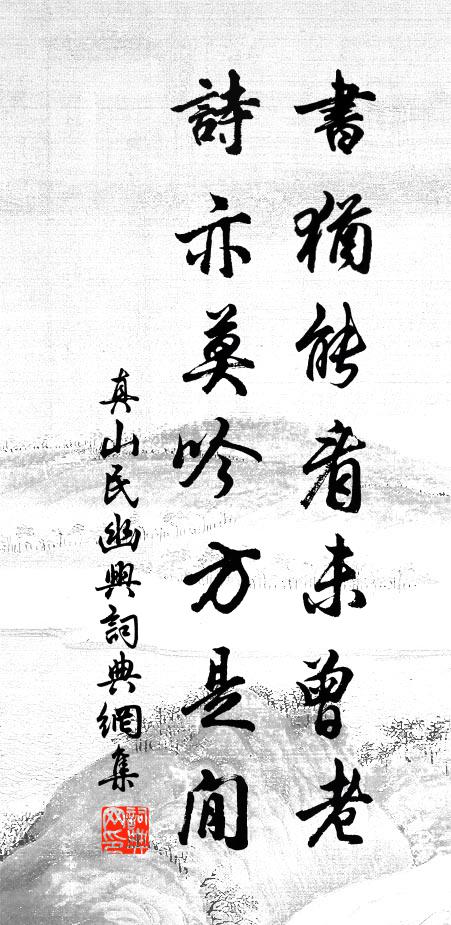 書猶能看未曾老
詩亦莫吟方是閒
真山民幽興詞典網集